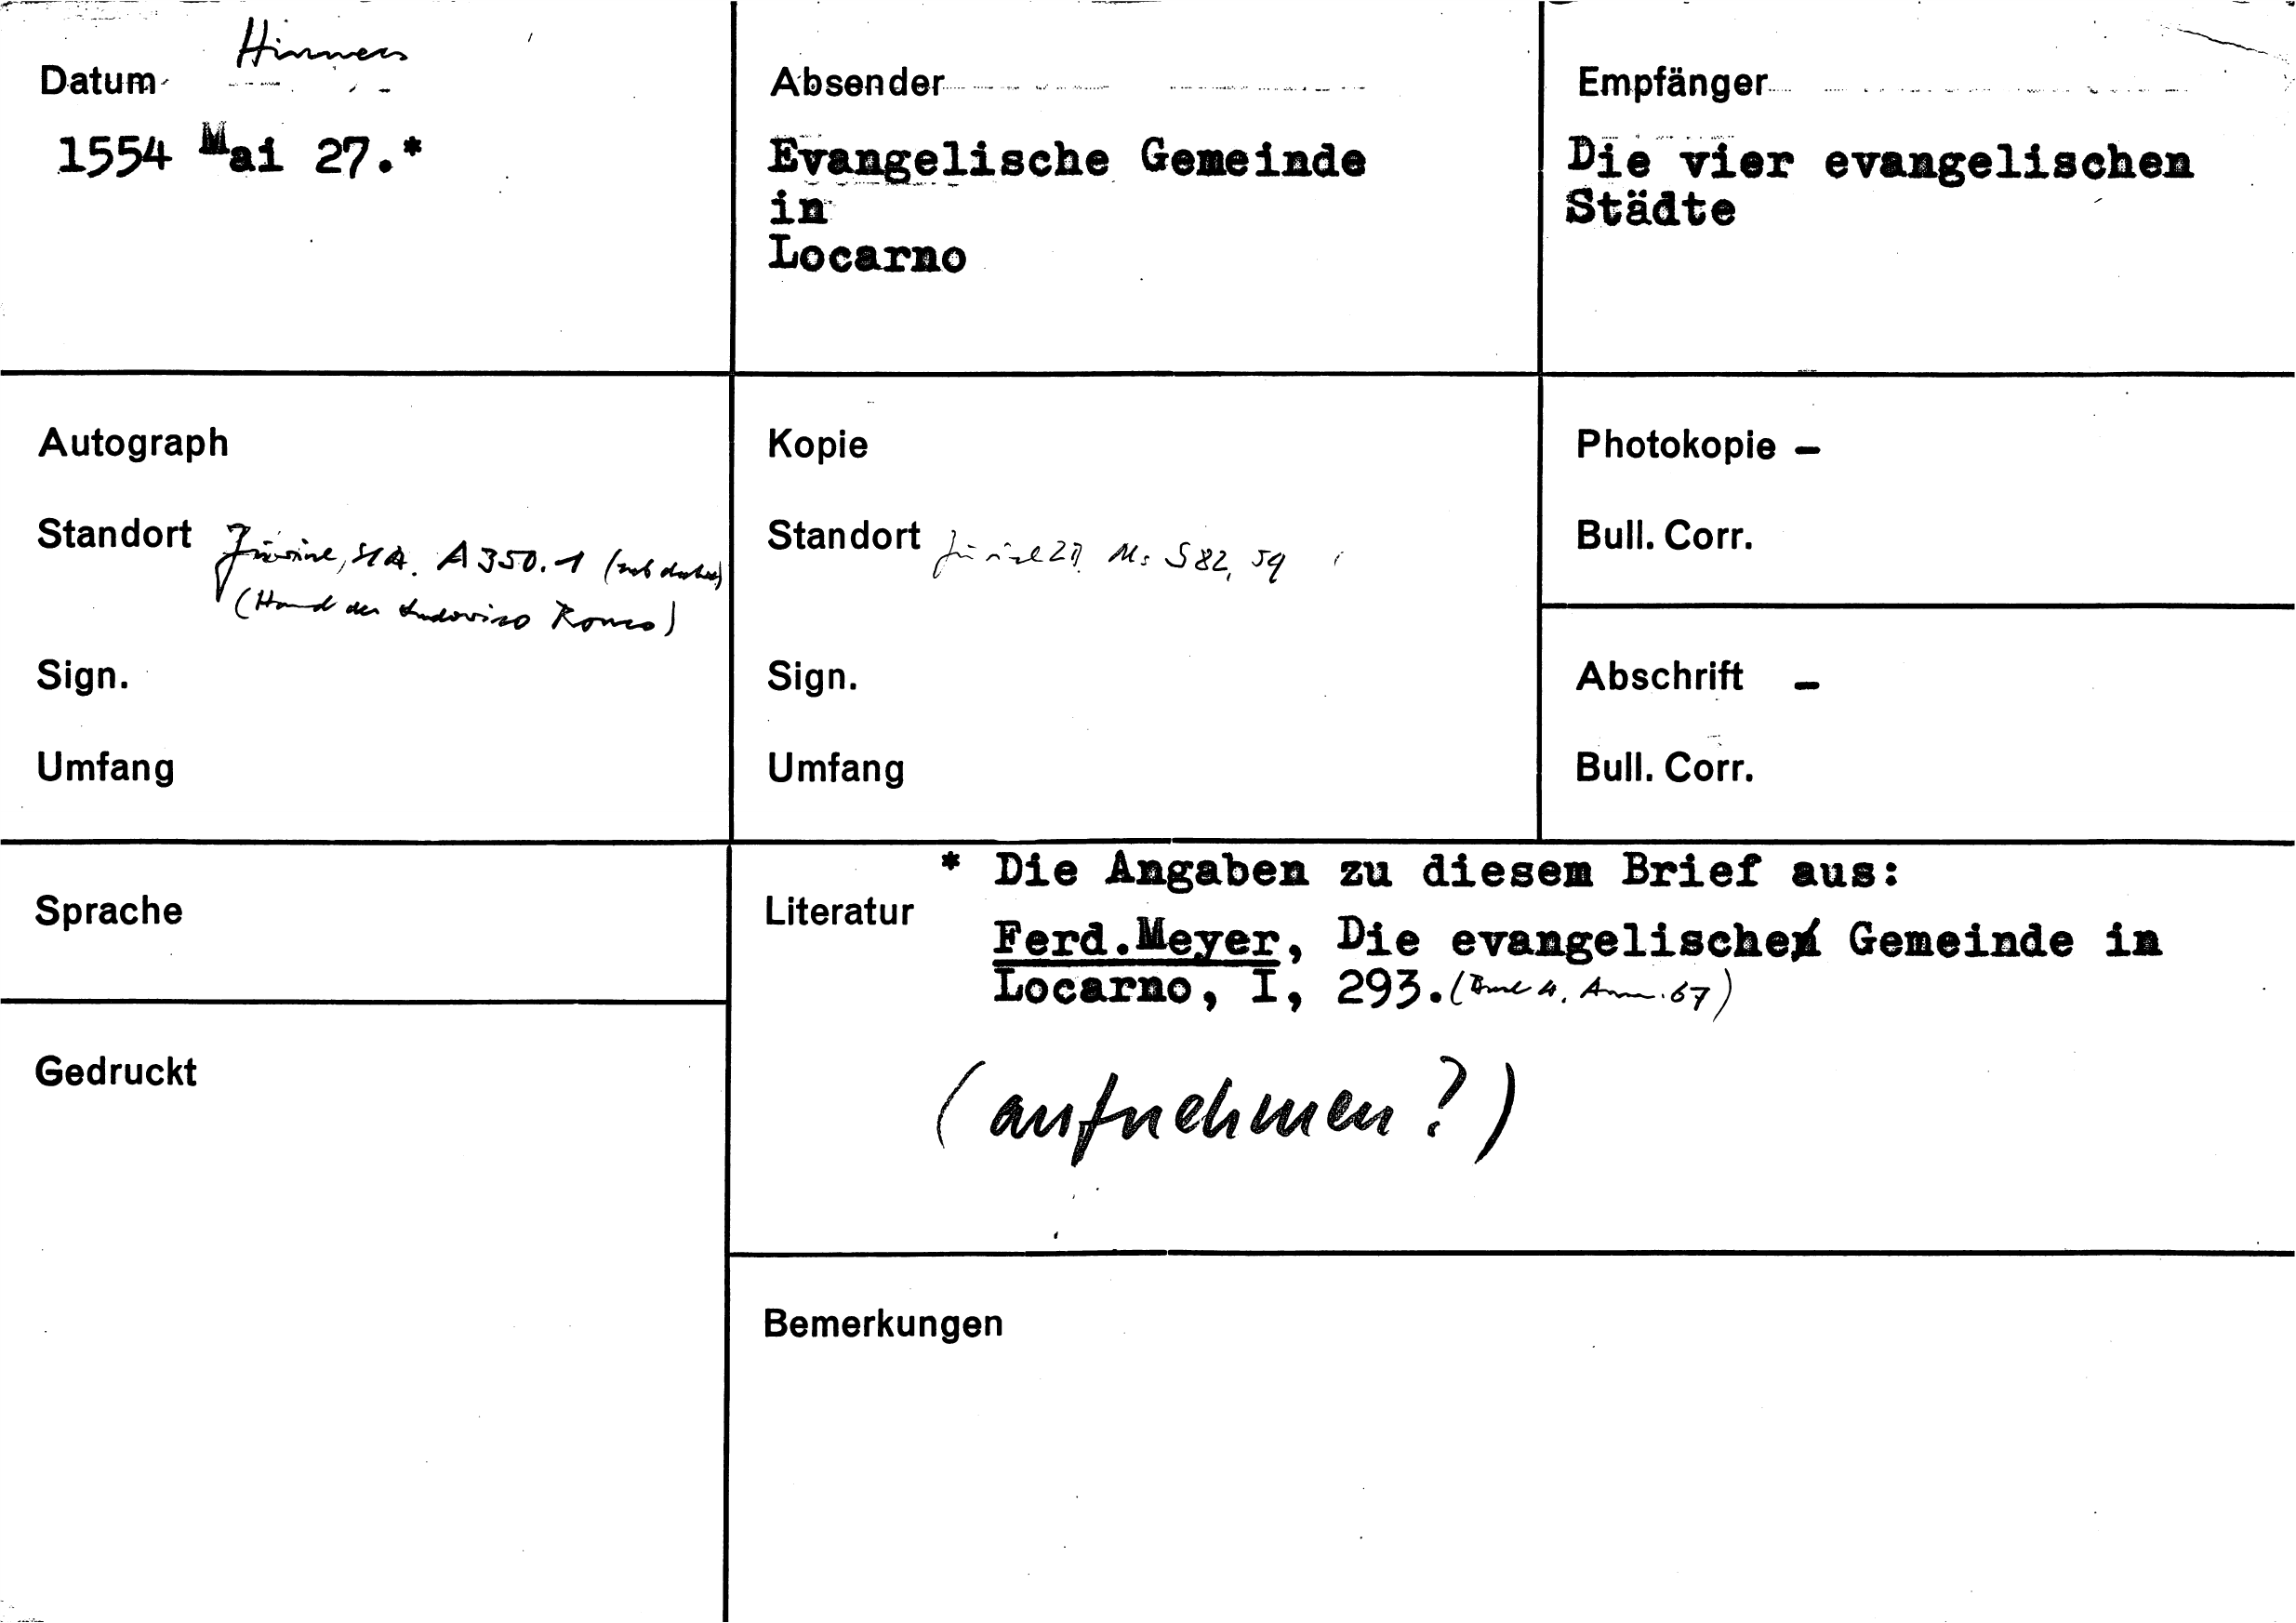 Hinweis
Datum
1554 Mai 27.*
Absender
Evangelische Gemeinde
in
Locarno
Empfänger
Die vier evangelischen
Städte
Autograph
Standort Zürich, StA. A 350.1 (sub dato)
(Hand des Ludovico Ronco)
Sign.
Umfang
Kopie
Standort Zürich ZB, Ms S 82, 59
Sign.
Umfang
Photokopie –
Bull. Corr.
Abschrift –
Bull. Corr.
Sprache
Gedruckt
* Die Angaben zu diesem Brief aus:
Literatur
Ferd.Meyer, Die evangelische Gemeinde in
Locarno, I, 293. Anm. 67)
(aufnehmen?)
Bemerkungen